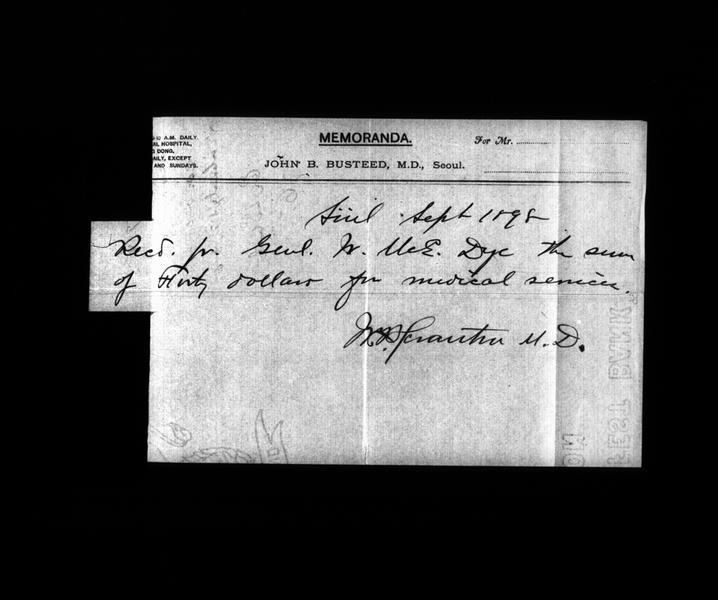 10 A.M. DAILY
AL HOSPITAL,
DONG,
DAILY, EXCEPT
AND SUNDAYS.
MEMORANDA.
For Mr.
JOHN B. BUSTEED, M.D., Seoul.
Sept 1898
Recd. fr. Genl. W. McE. Dye the sum
of Forty dollars for medical services.
W. B. Scranton M.D.